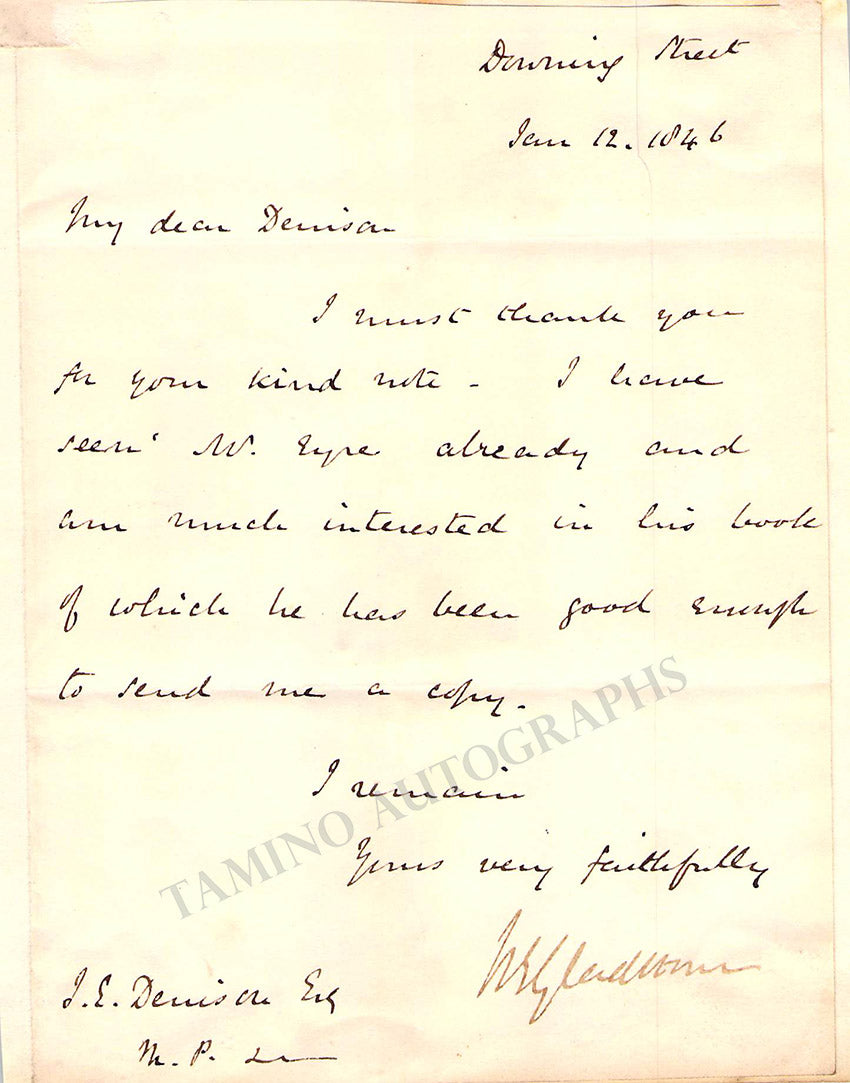 Downing Street
Jan 12. 1846
My dear Denison
I must thank you
for your kind note - I have
seen Mr. Eyre already and
am much interested in his book
of which he has been good enough
to send me a copy.
I remain
Yours very faithfully
WEGladstone
J. E. Denison Esq
M. P.
TAMINO AUTOGRAPHS